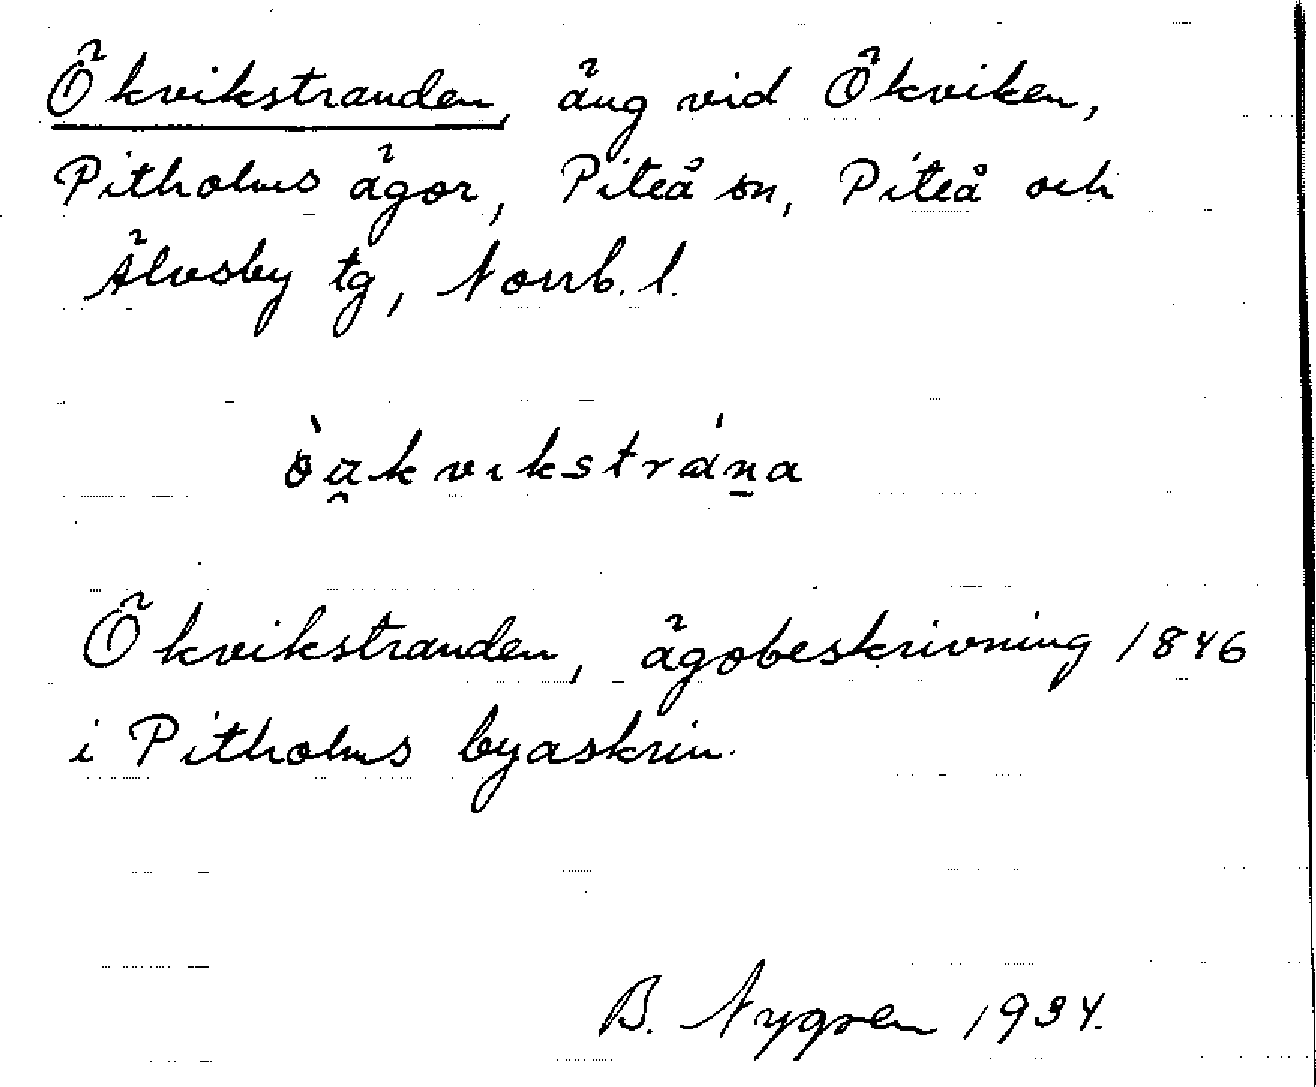 Ökvikstranden, äng vid Ökviken,
Pitholms ägor, Piteå sn, Piteå och
Älvsby tg, Norrb. l.
ò̀a̯kvikstrána̠a
Ökvikstranden, ägobeskrivning 1846
i Pitholms byaskrin.
B. Nygren 1934.